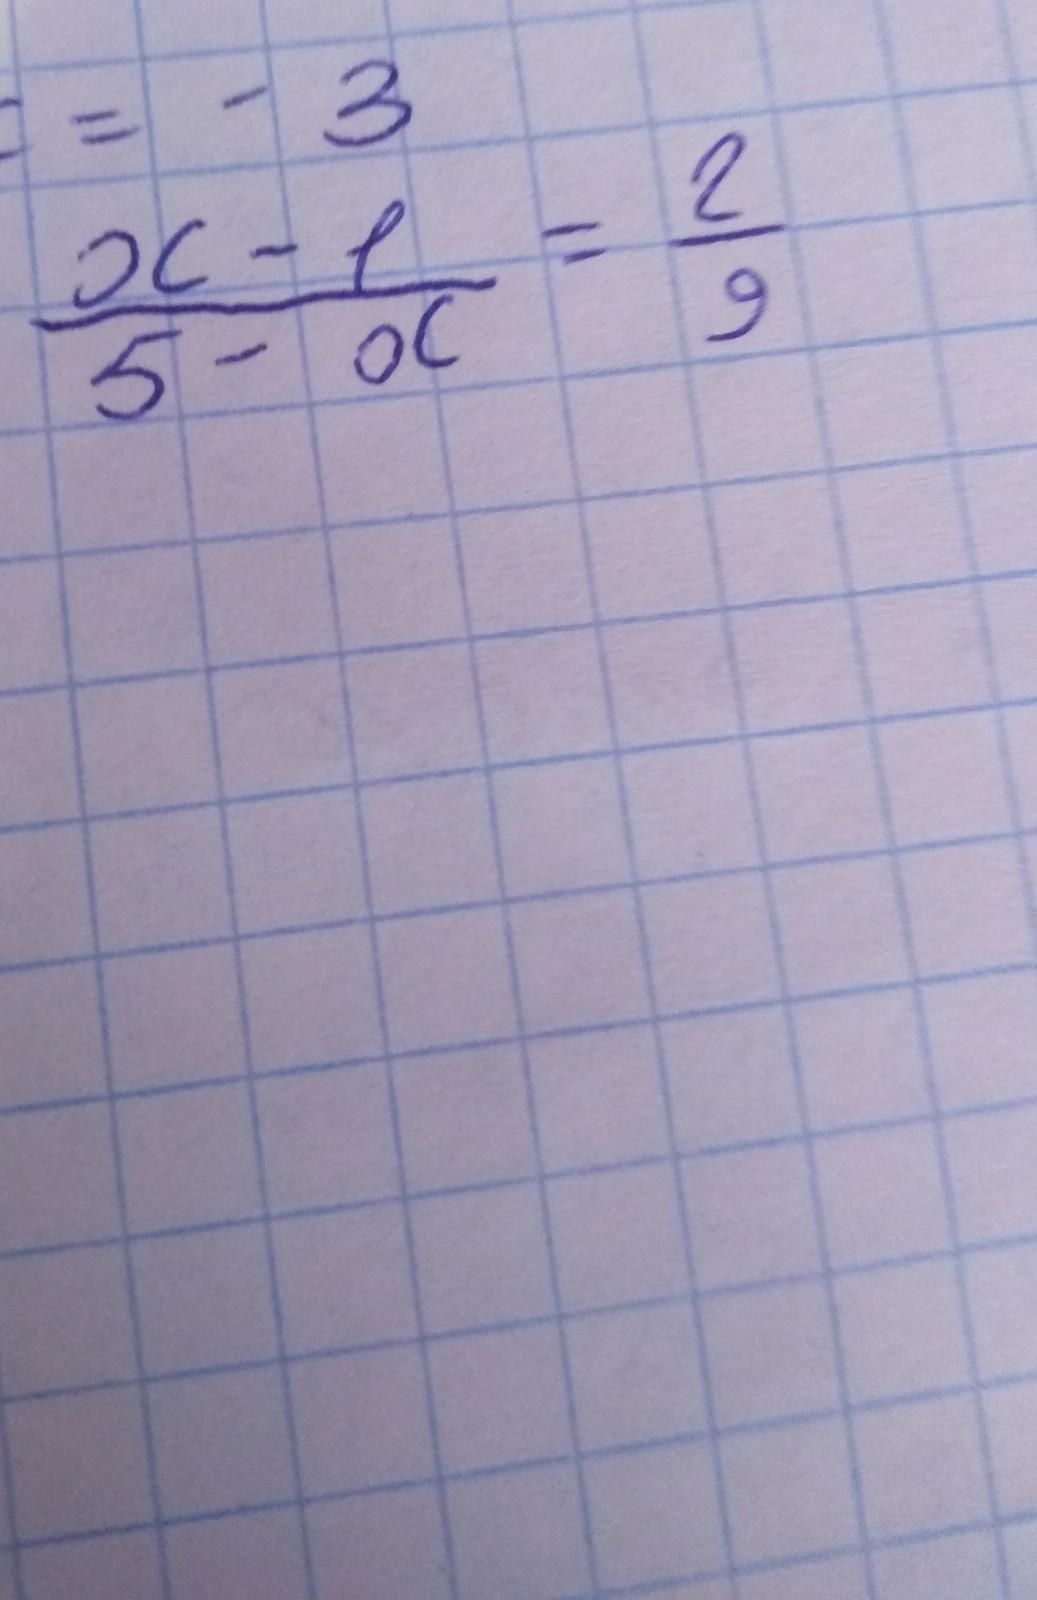 = - 3
x - 1 / 5 - x = 2 / 9